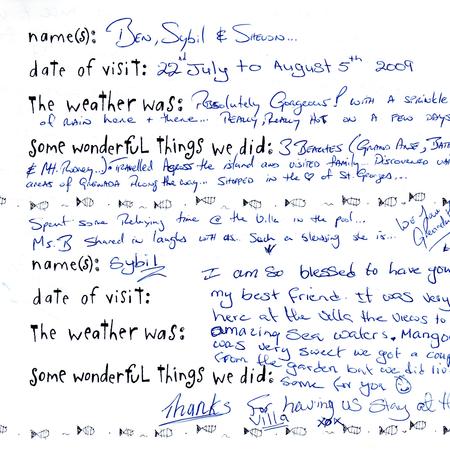 name(s): Ben, Sybil & Shevon...
date of visit: 22nd July to August 5th 2009
The weather was: Absolutely Gorgeous! with a sprinkle
of rain here & there... Really, Really Hot on a few days
Some wonderful things we did: 3 Beaches (Grand Anse, Bat
& Mt. Rodney...). Travelled Across the island and visited family... Discovered
areas of Grenada Along the way... Stopped in the ♡ of St. Georges...
Spent some Relaxing time @ the Villa in the pool...
We love Grenada
Ms. B shared in laughs with us. Such a blessing she is...
name(s): Sybil
I am so blessed to have you
my best friend. It was very
date of visit:
here at the villa the views to
The weather was: amazing sea waters. Mango
was very sweet we got a coup
from the garden but we did
Some wonderful things we did: some for you ☺
Thanks For having us stay at th
villa xox